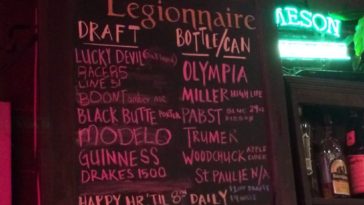 Legionnaire
DRAFT
LUCKY DEVIL
RACER 5
LINE 51
BOONT amber ale
BLACK BUTTE PORTER
MODELO
GUINNESS
DRAKES 1500
BOTTLE/CAN
OLYMPIA
MILLER HIGH LIFE
PABST
TRUMER
WOODCHUCK APPLE CIDER
St PAULIE N/A
HAPPY HR 'TIL 8PM DAILY
MESON